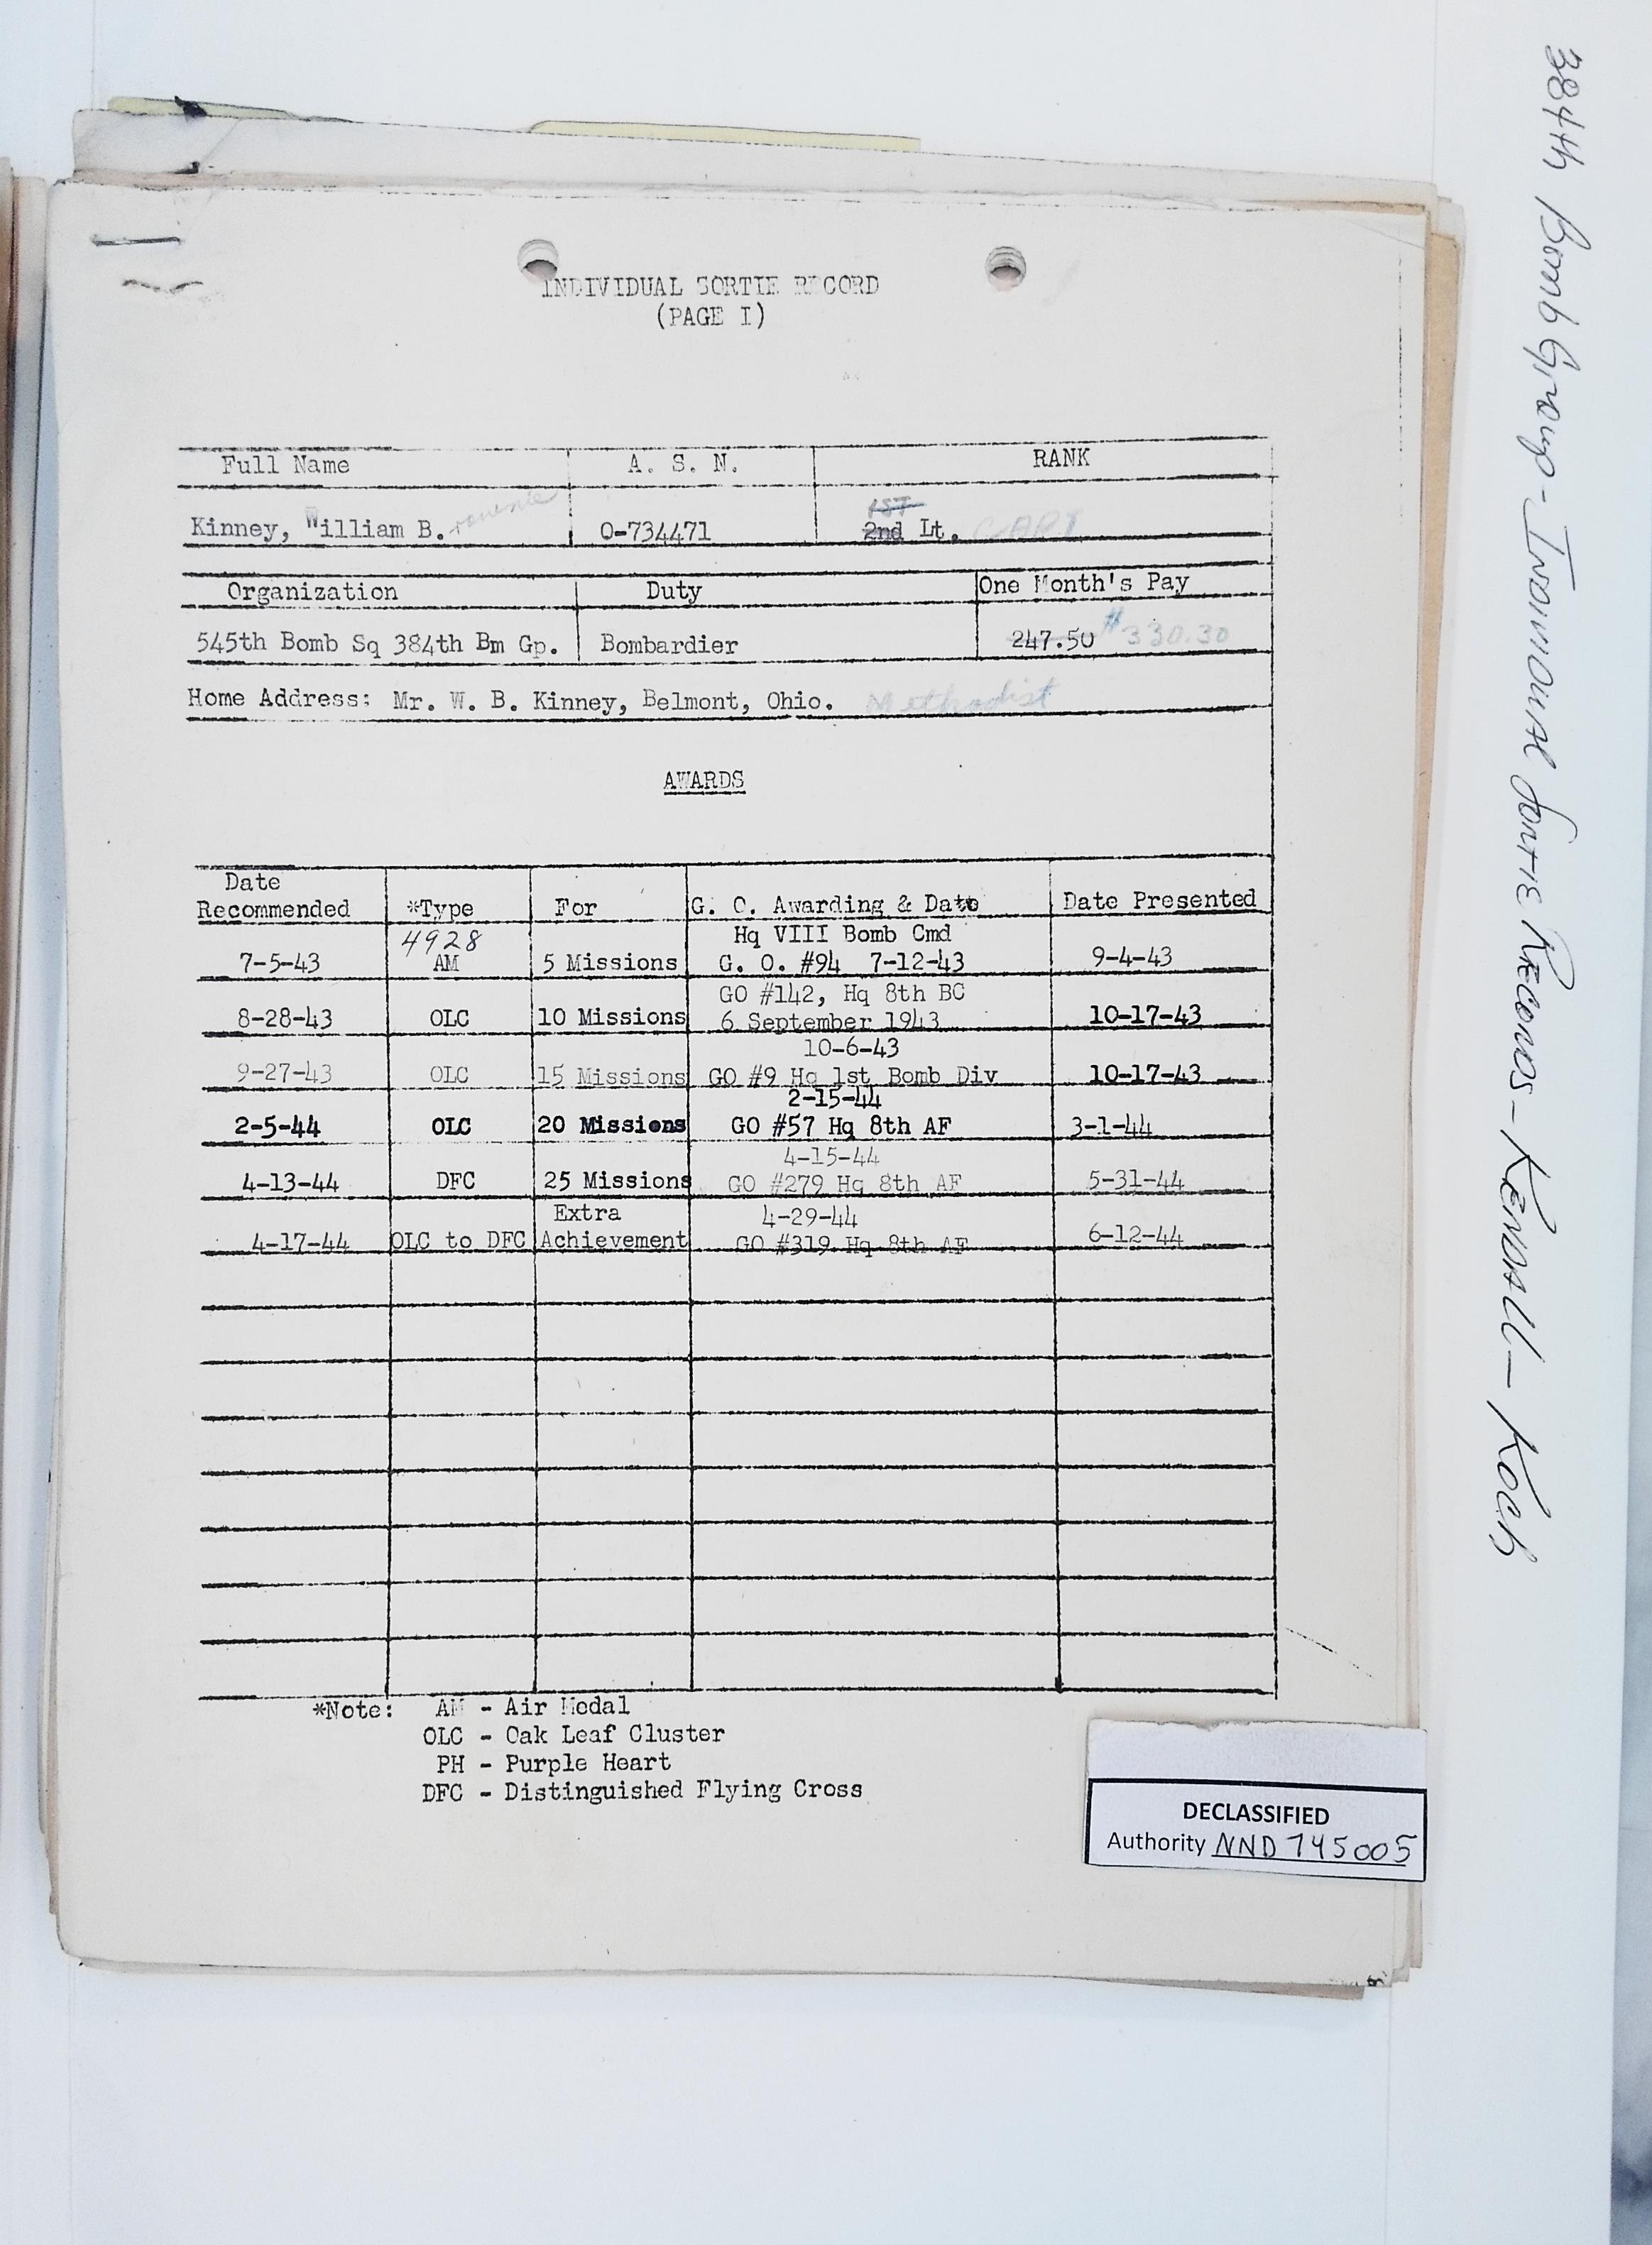 INDIVIDUAL SORTIE RECORD
(PAGE I)
Full Name A. S. N. RANK
1ST
Kinney, William B. O-734471 2nd Lt. CAPT
Organization Duty One Month's Pay
545th Bomb Sq 384th Bm Gp. Bombardier 247.50 $330.30
Home Address: Mr. W. B. Kinney, Belmont, Ohio. Methodist
AWARDS
Date
Recommended *Type For G. O. Awarding & Date Date Presented
4928 Hq VIII Bomb Cmd
7-5-43 AM 5 Missions G. O. #94 7-12-43 9-4-43
GO #142, Hq 8th BC
8-28-43 OLC 10 Missions 6 September 1943 10-17-43
10-6-43
9-27-43 OLC 15 Missions GO #9 Hq 1st Bomb Div 10-17-43
2-15-44
2-5-44 OLC 20 Missions GO #57 Hq 8th AF 3-1-44
4-15-44
4-13-44 DFC 25 Missions GO #279 Hq 8th AF 5-31-44
Extra 4-29-44
4-17-44 OLC to DFC Achievement GO #319 Hq 8th AF 6-12-44
*Note: AM - Air Medal
OLC - Oak Leaf Cluster
PH - Purple Heart
DFC - Distinguished Flying Cross
DECLASSIFIED
Authority NND 745005
384th Bomb Group - Individual Sortie Records - Kendall - Koch